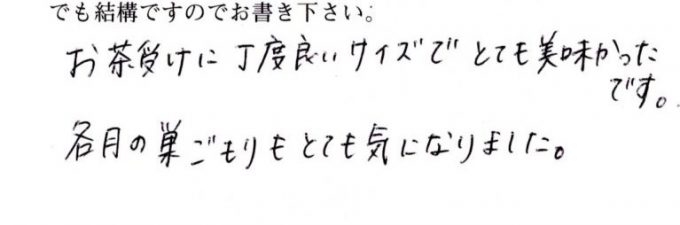 でも結構ですのでお書き下さい。
お茶受けに丁度良いサイズでとても美味かった
です。
各月の巣ごもりもとても気になりました。